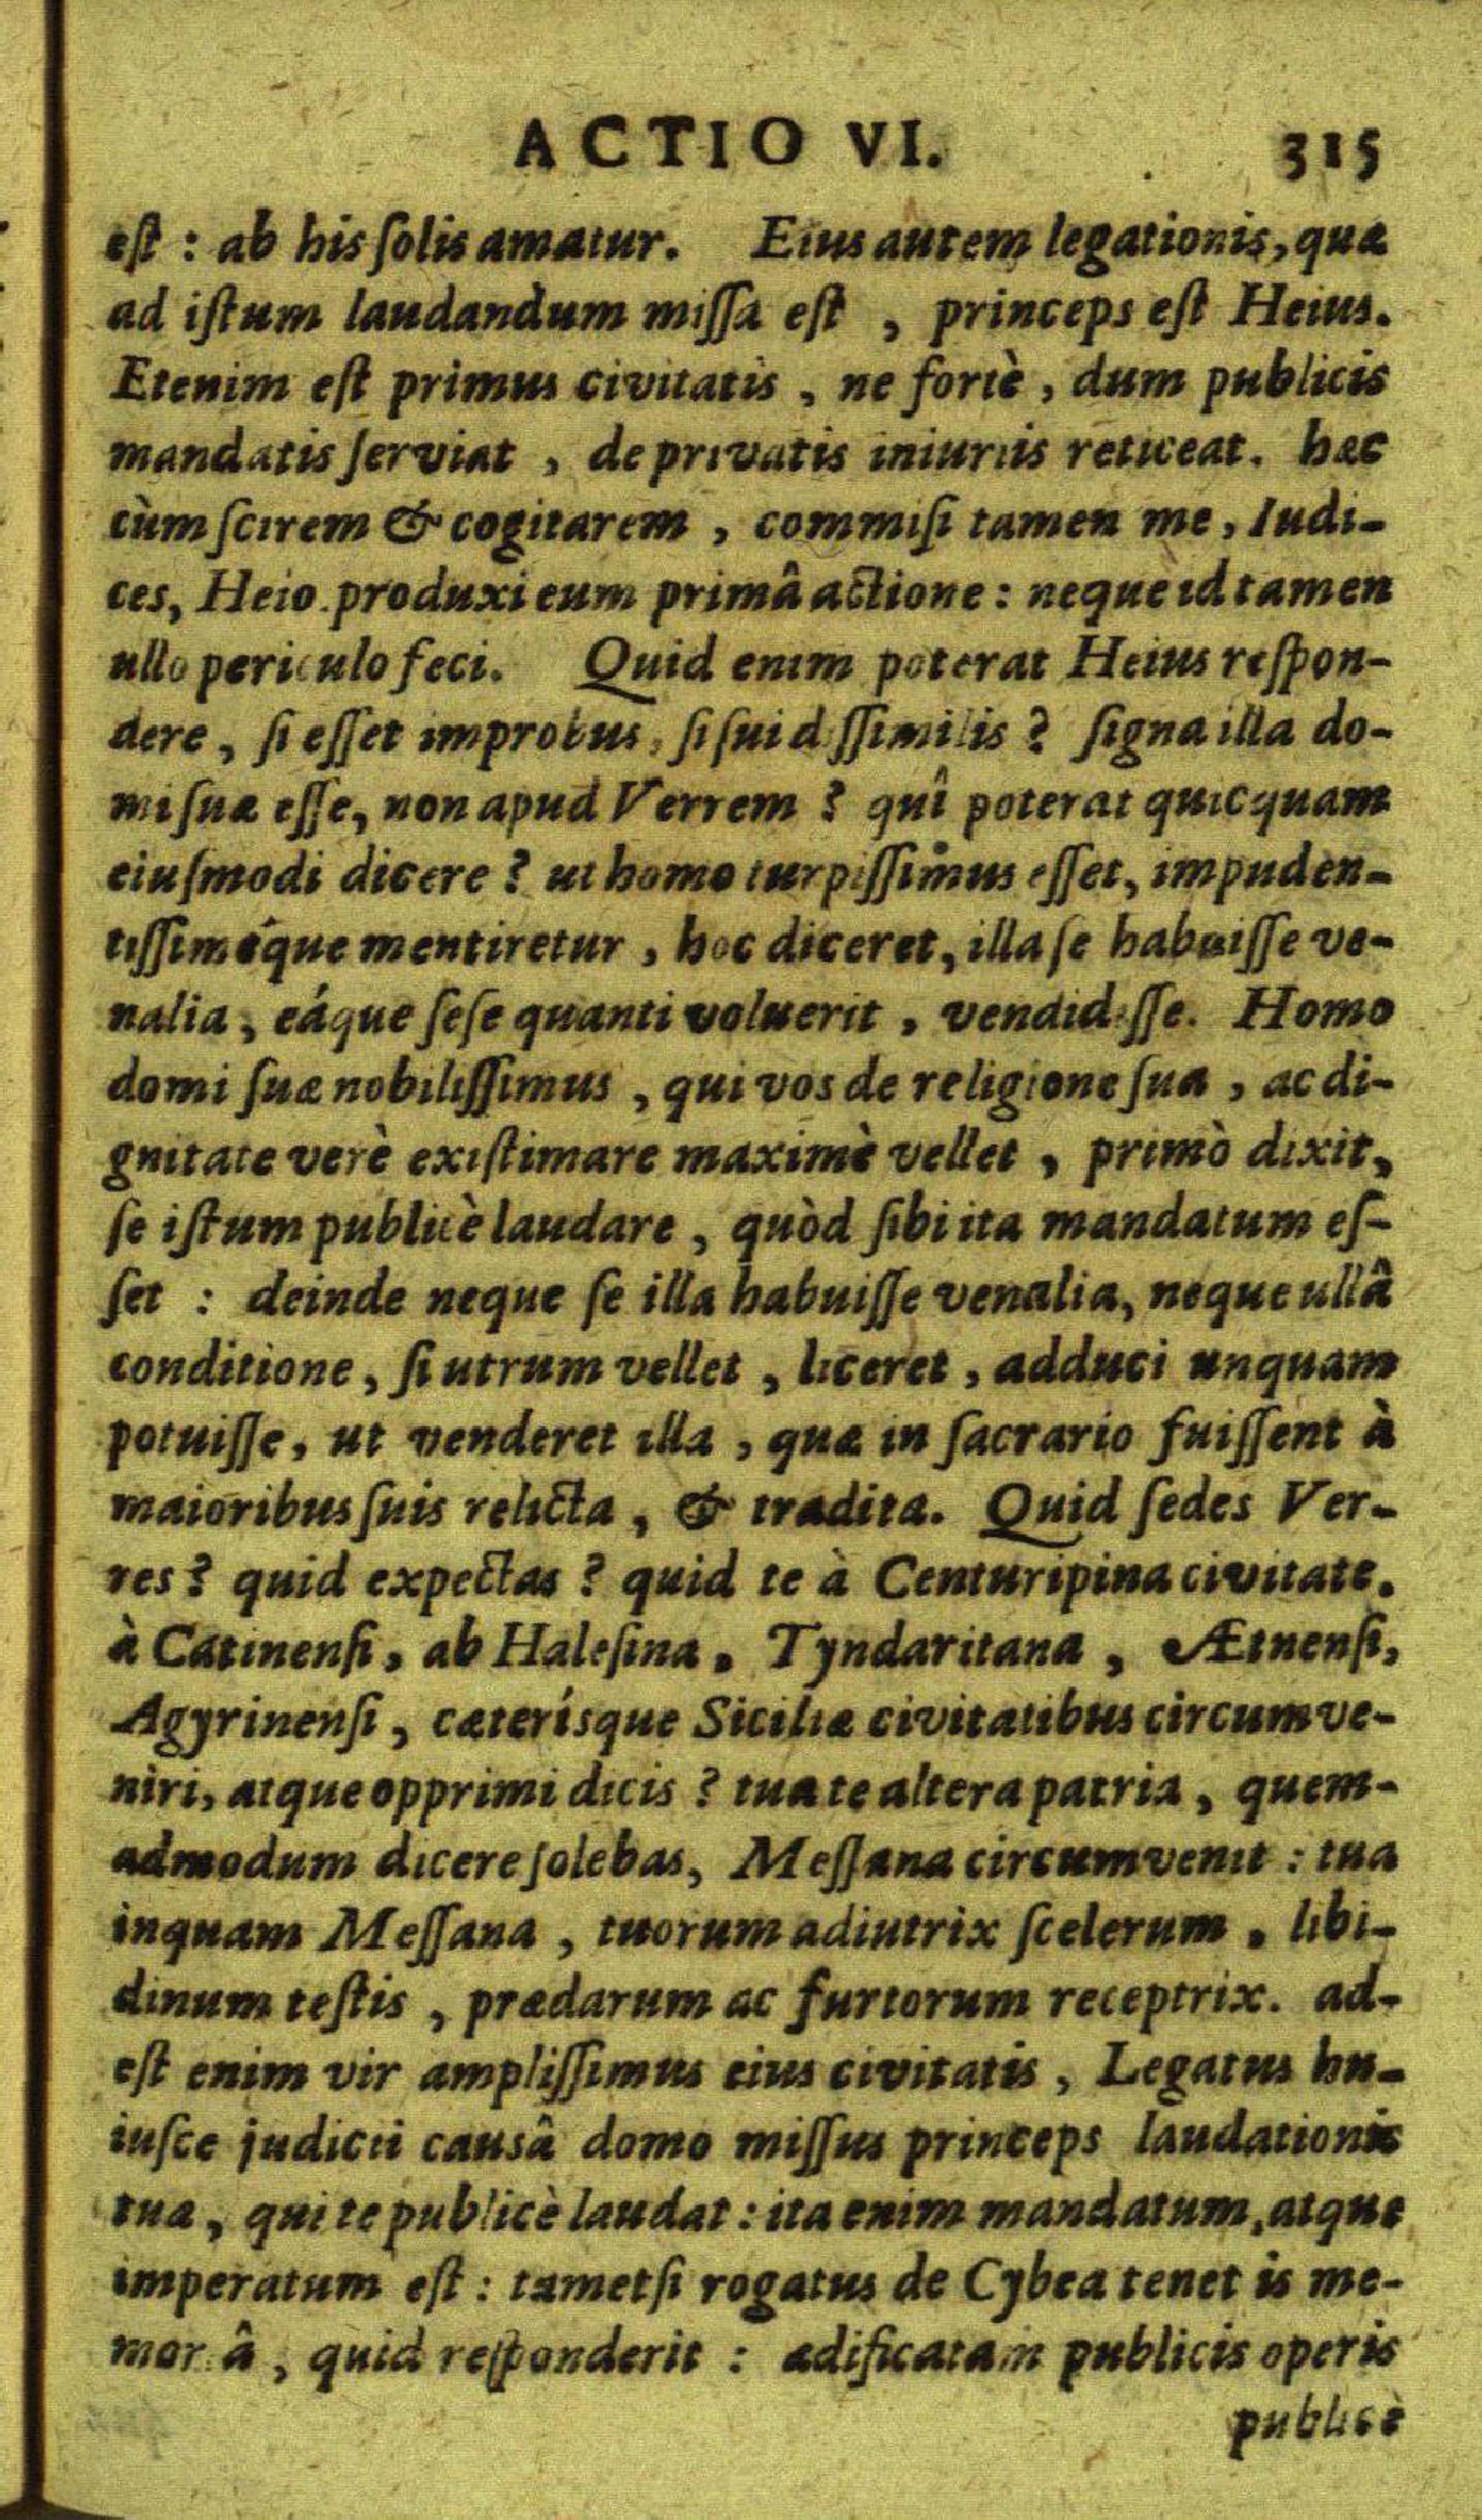 ACTIO VI. 315
eſt : ab his ſolis amatur. Eius autem legationis, quæ
ad iſtum laudandum miſſa eſt , princeps eſt Heius.
Etenim eſt primus civitatis , ne fortè , dum publicis
mandatis ſerviat , de privatis iniuriis reticeat. hæc
cùm ſcirem & cogitarem , commiſi tamen me, Iudi-
ces, Heio. produxi eum primâ actione : neque id tamen
ullo periculo feci. Quid enim poterat Heius reſpon-
dere , ſi eſſet improbus, ſi ſui diſſimilis ? ſigna illa do-
mi ſuæ eſſe, non apud Verrem ? quî poterat quicquam
eiuſmodi dicere ? ut homo turpiſſimus eſſet, impuden-
tiſſiméque mentiretur , hoc diceret, illa ſe habuiſſe ve-
nalia , eáque ſeſe quanti voluerit , vendidiſſe. Homo
domi ſuæ nobiliſſimus , qui vos de religione ſua , ac di-
gnitate verè exiſtimare maximè vellet , primò dixit,
ſe iſtum publicè laudare , quòd ſibi ita mandatum eſ-
ſet : deinde neque ſe illa habuiſſe venalia, neque ullâ
conditione , ſi utrum vellet , liceret , adduci unquam
potuiſſe, ut venderet illa , quæ in ſacrario fuiſſent à
maioribus ſuis relicta , & tradita. Quid ſedes Ver-
res ? quid expectas ? quid te à Centuripina civitate,
à Catinenſi, ab Haleſina, Tyndaritana , Ætnenſi,
Agyrinenſi , cæterísque Siciliæ civitatibus circumve-
niri, atque opprimi dicis ? tua te altera patria , quem-
admodum dicere ſolebas, Meſſana circumvenit : tua
inquam Meſſana , tuorum adiutrix ſcelerum , libi-
dinum teſtis , prædarum ac furtorum receptrix. ad-
eſt enim vir ampliſſimus eius civitatis , Legatus hu-
iuſce judicii causâ domo miſſus princeps laudationis
tuæ , qui te publicè laudat : ita enim mandatum, atque
imperatum eſt : tametſi rogatus de Cybea tenet is me-
moriâ , quid reſponderit : ædificatam publicis operis
publicè